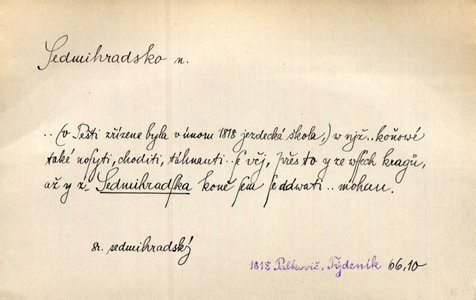 Sedmihradsko n.
.. (v Pešti zřízena byla v únom 1818 jezdecká škola,) w njž .. koňowé
také nosyti, choditi, táhnauti .. se včj, přes to y ze wssech kragů,
až y z Sedmihradska koně sem se ddwati .. mohau.
sr. sedmihradský
1818 Palkovič, Týdeník 66,10